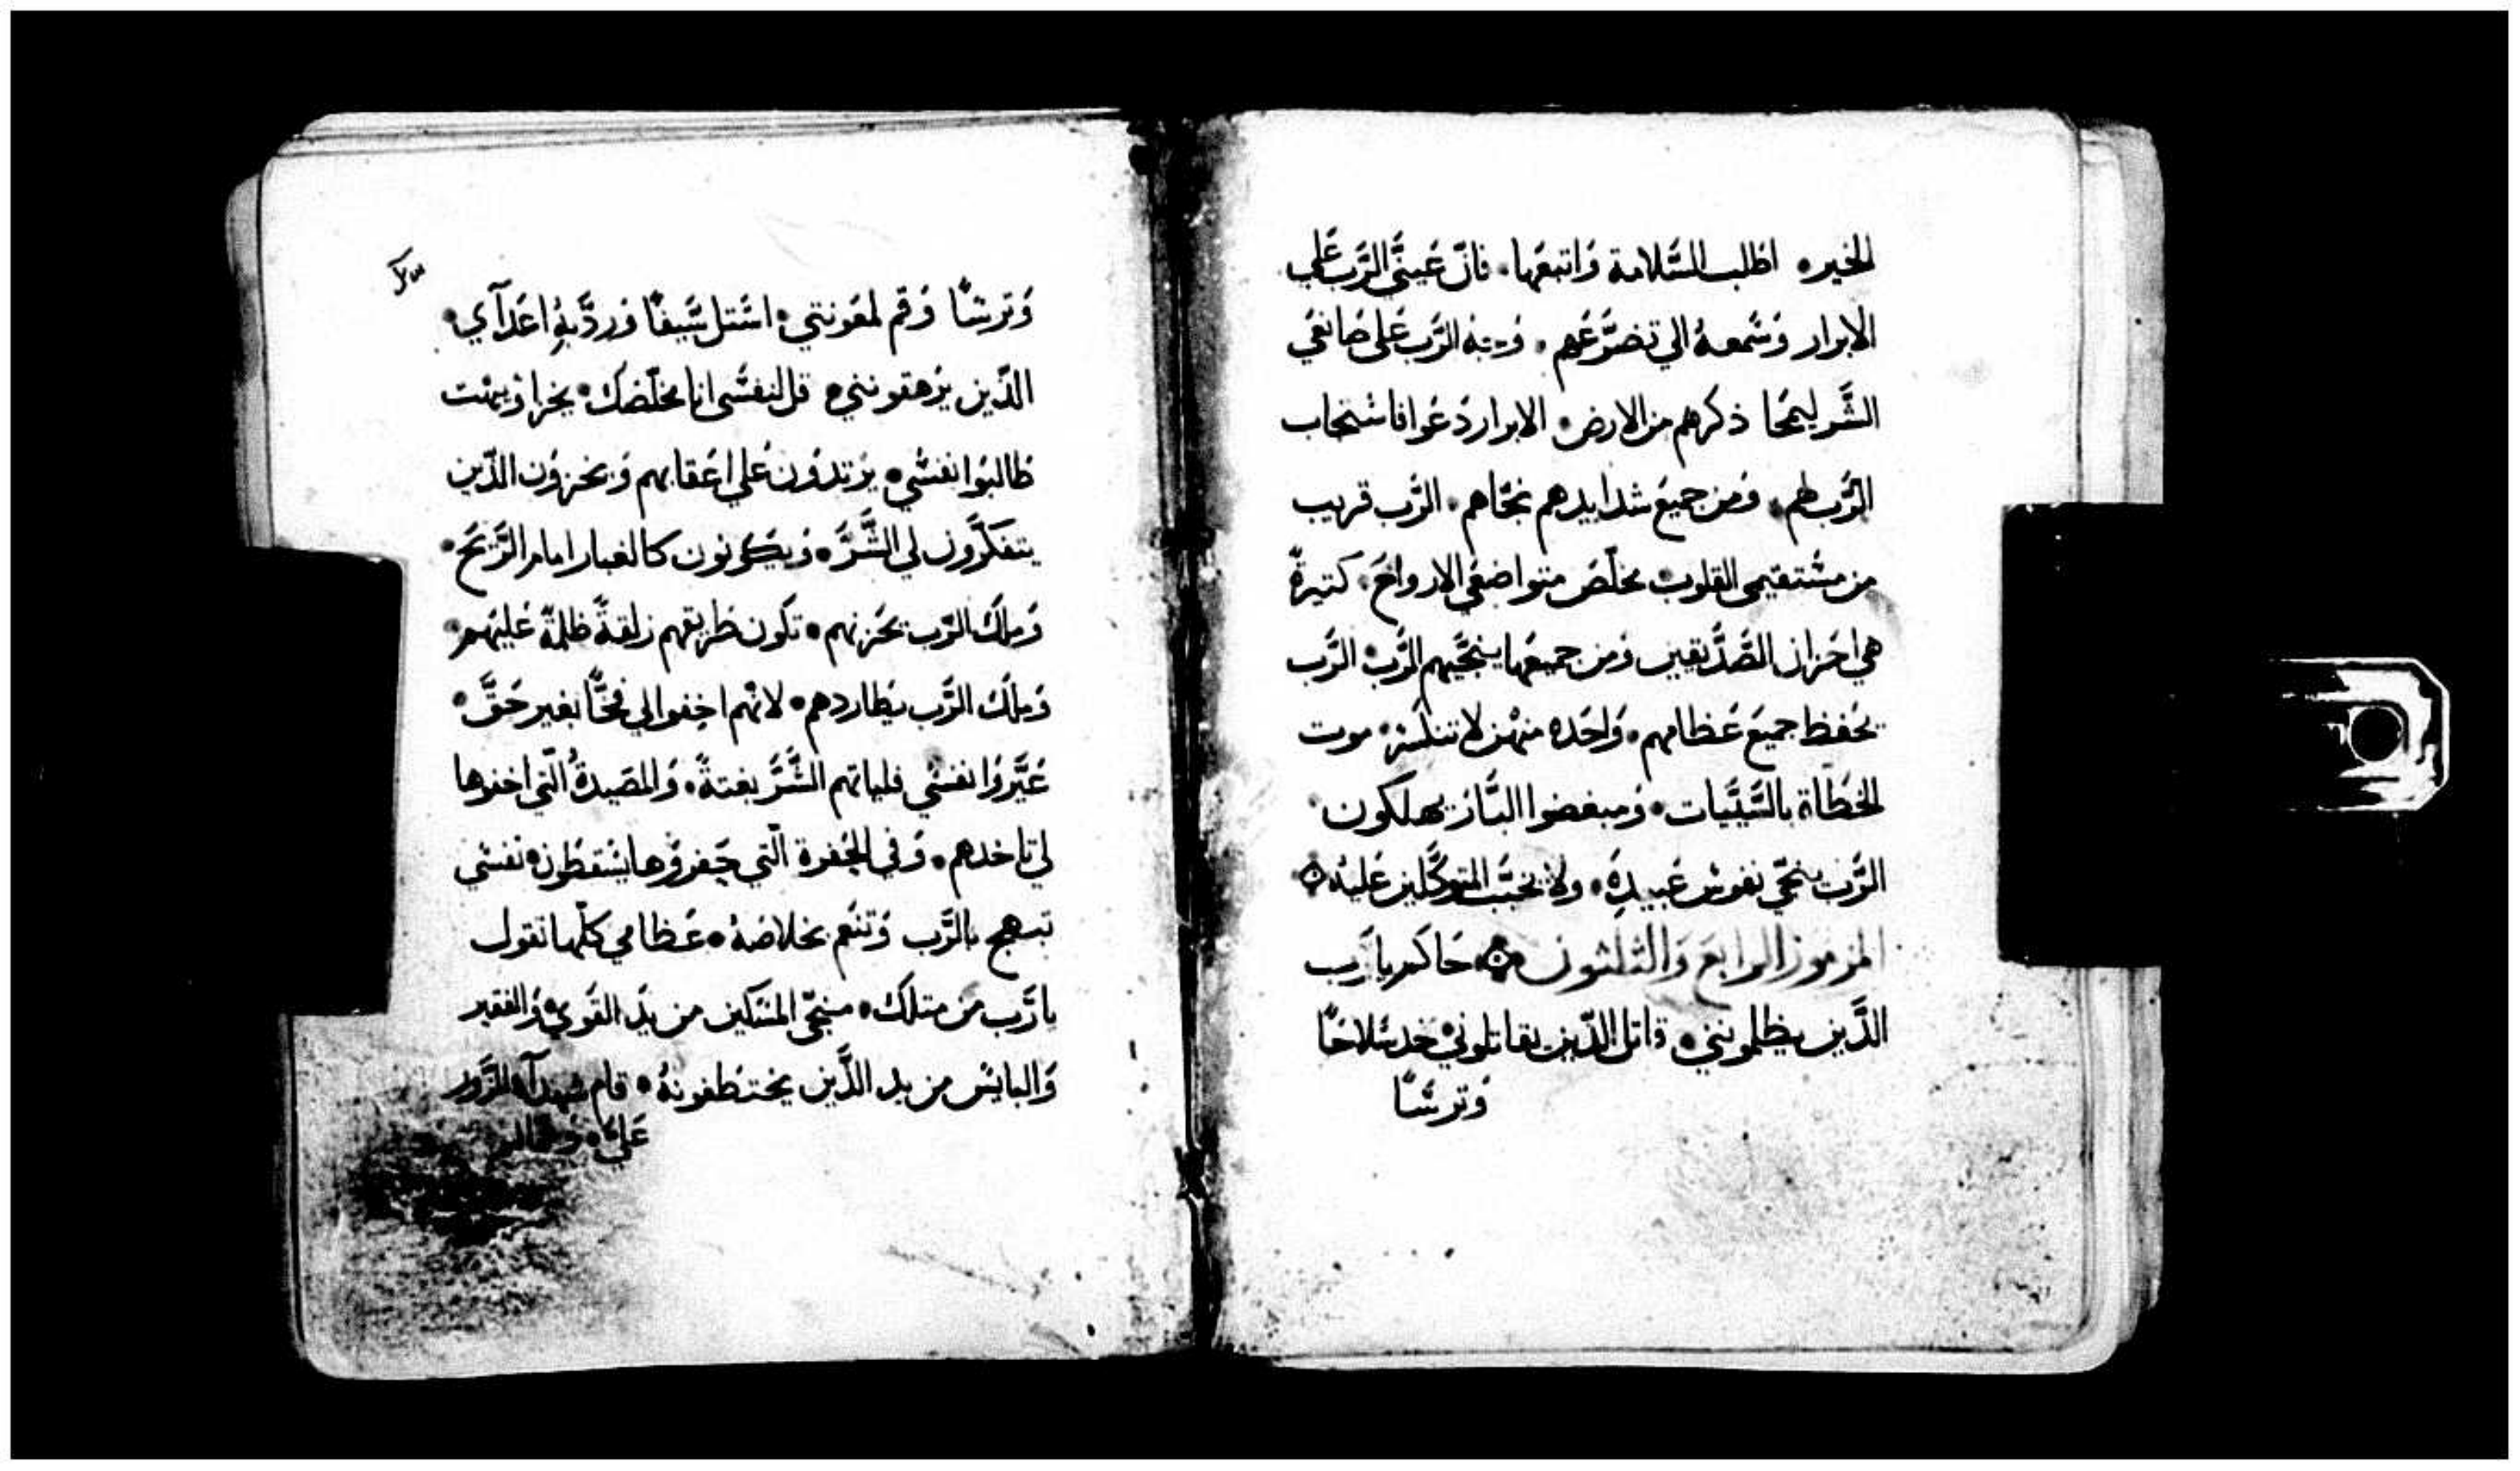 الخير۰ اطلب السَّلامة وَاتبعَها۰ فانّ عَينيَّ الرَّب عَلي
الابرار وَسَمعهُ الي تضرَّعَهم۰ وَوجهُ الرَّب عَلى صَانعَي
الشَّر ليمحَا ذكرهم من الارض۰ الابرار دَعَوا فاستجاب
الرَّب لهم۰ وَمن جميعَ شدايدهم نجَّاهم۰ الرَّب قريب
من مستقيمي القلوب۰ مخلّص متواضعَي الارواحَ۰ كتيرةً
هي احَزان الصَّدَّيقين وَمن جميعَها ينجَّيهم الرَّب۰ الرَّب
يحَفظ جميعَ عَظامهم۰ وَاحَده منهن لا تنكسر۰ موت
الخطاة بالسَّيَّيات۰ وَمبغضوا البَّار يهلكون۰
الرَّب ينجَّي نفوس عَبيدهِ۰ ولا يخيَّب المتوكَّلين عَليهُ
المزمور الرابعَ وَالثلثون۰ حَاكم يا رَب
الذَّين يظلمونني۰ قاتل الذّين يقاتلوني۰ خد سَلاحَاً
وَترسَاً
وَترسَاً وَقم لمعَونتي۰ استل سَيفاً وَردَّ بهِ اعَدآي۰
الذّين يرَهقونني۰ قل لنفسَي انا مخلّصك۰ يخزا وَيبهت
طالبوا نفسَي۰ يرَتدوَن عَلي اعَقابهم وَيخزوَن الذّين
يتفكَّروَن لي الشَّرَّ۰ وَيكونون كالغبار امام الرَّيحَ۰
وَملاك الرَّب يحَزنهم۰ تكون طريقهم زلقةً ظلمةً عَليهم
وَملاك الرَّب يطاردهم۰ لانهم اخفوا لي فخَّاً بغير حَقَّ۰
عَيَّروَا نفسَي فلياتهم الشَّرَّ بغتةً۰ وَالمصَيدةُ الّتي اخفوها
لي تاخدهم۰ وَفي الحَفرة الّتي حَفروَها يسَقطون۰ نفسَي
تبهج بالرَّب وَتنعَم بخلاصَهُ۰ عَظامي كلّها تقول
يا رَّب من متلك۰ منجَّي المسَكين من يدَ القَويَّ وَالفقير
وَالبايسَ من يد الذَّين يختطفونهُ۰ قام شهدآء الزَّور
عَليَّ۰